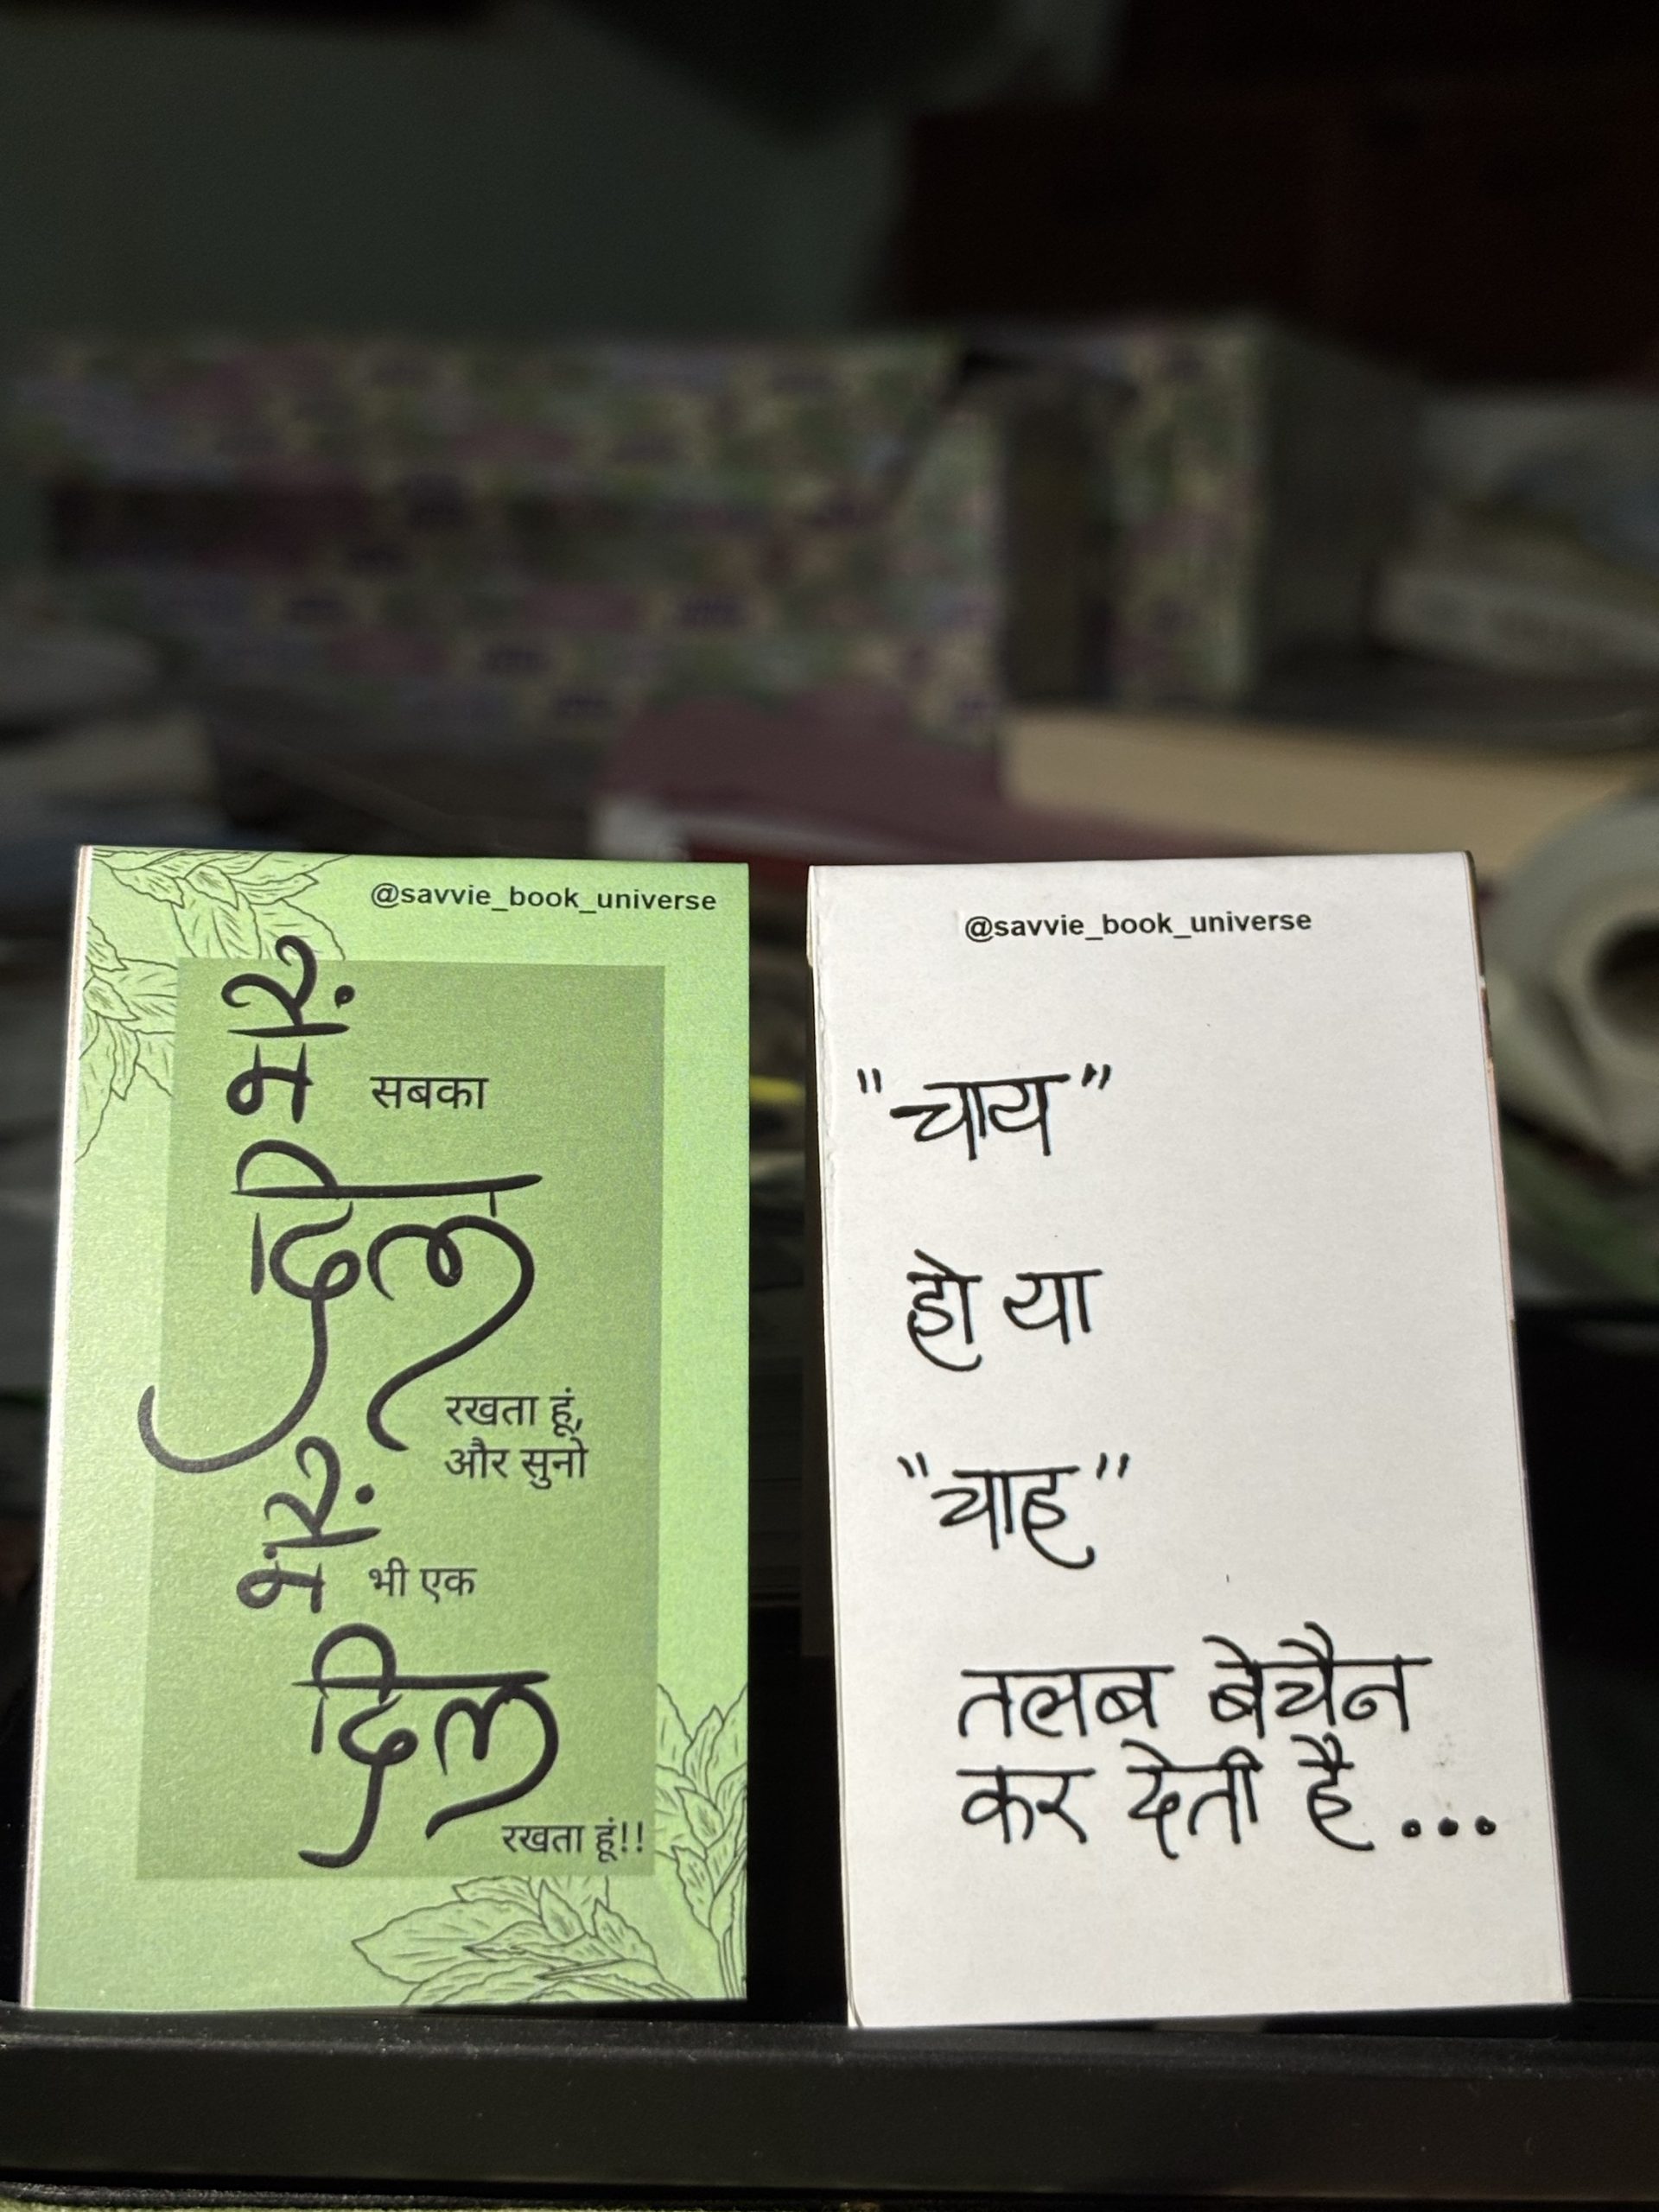 @savvie_book_universe
मैं सबका
दिल
रखता हूं,
और सुनो
मैं भी एक
दिल
रखता हूं!!
@savvie_book_universe
"चाय"
हो या
"चाह"
तलब बेचैन
कर देती है...